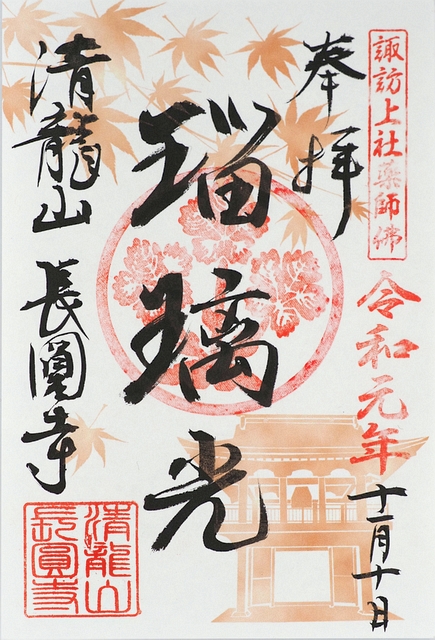 諏訪上社薬師佛
奉拝
令和元年
十一月十日
瑠璃光
清龍山
長圓寺
清龍山
長圓寺